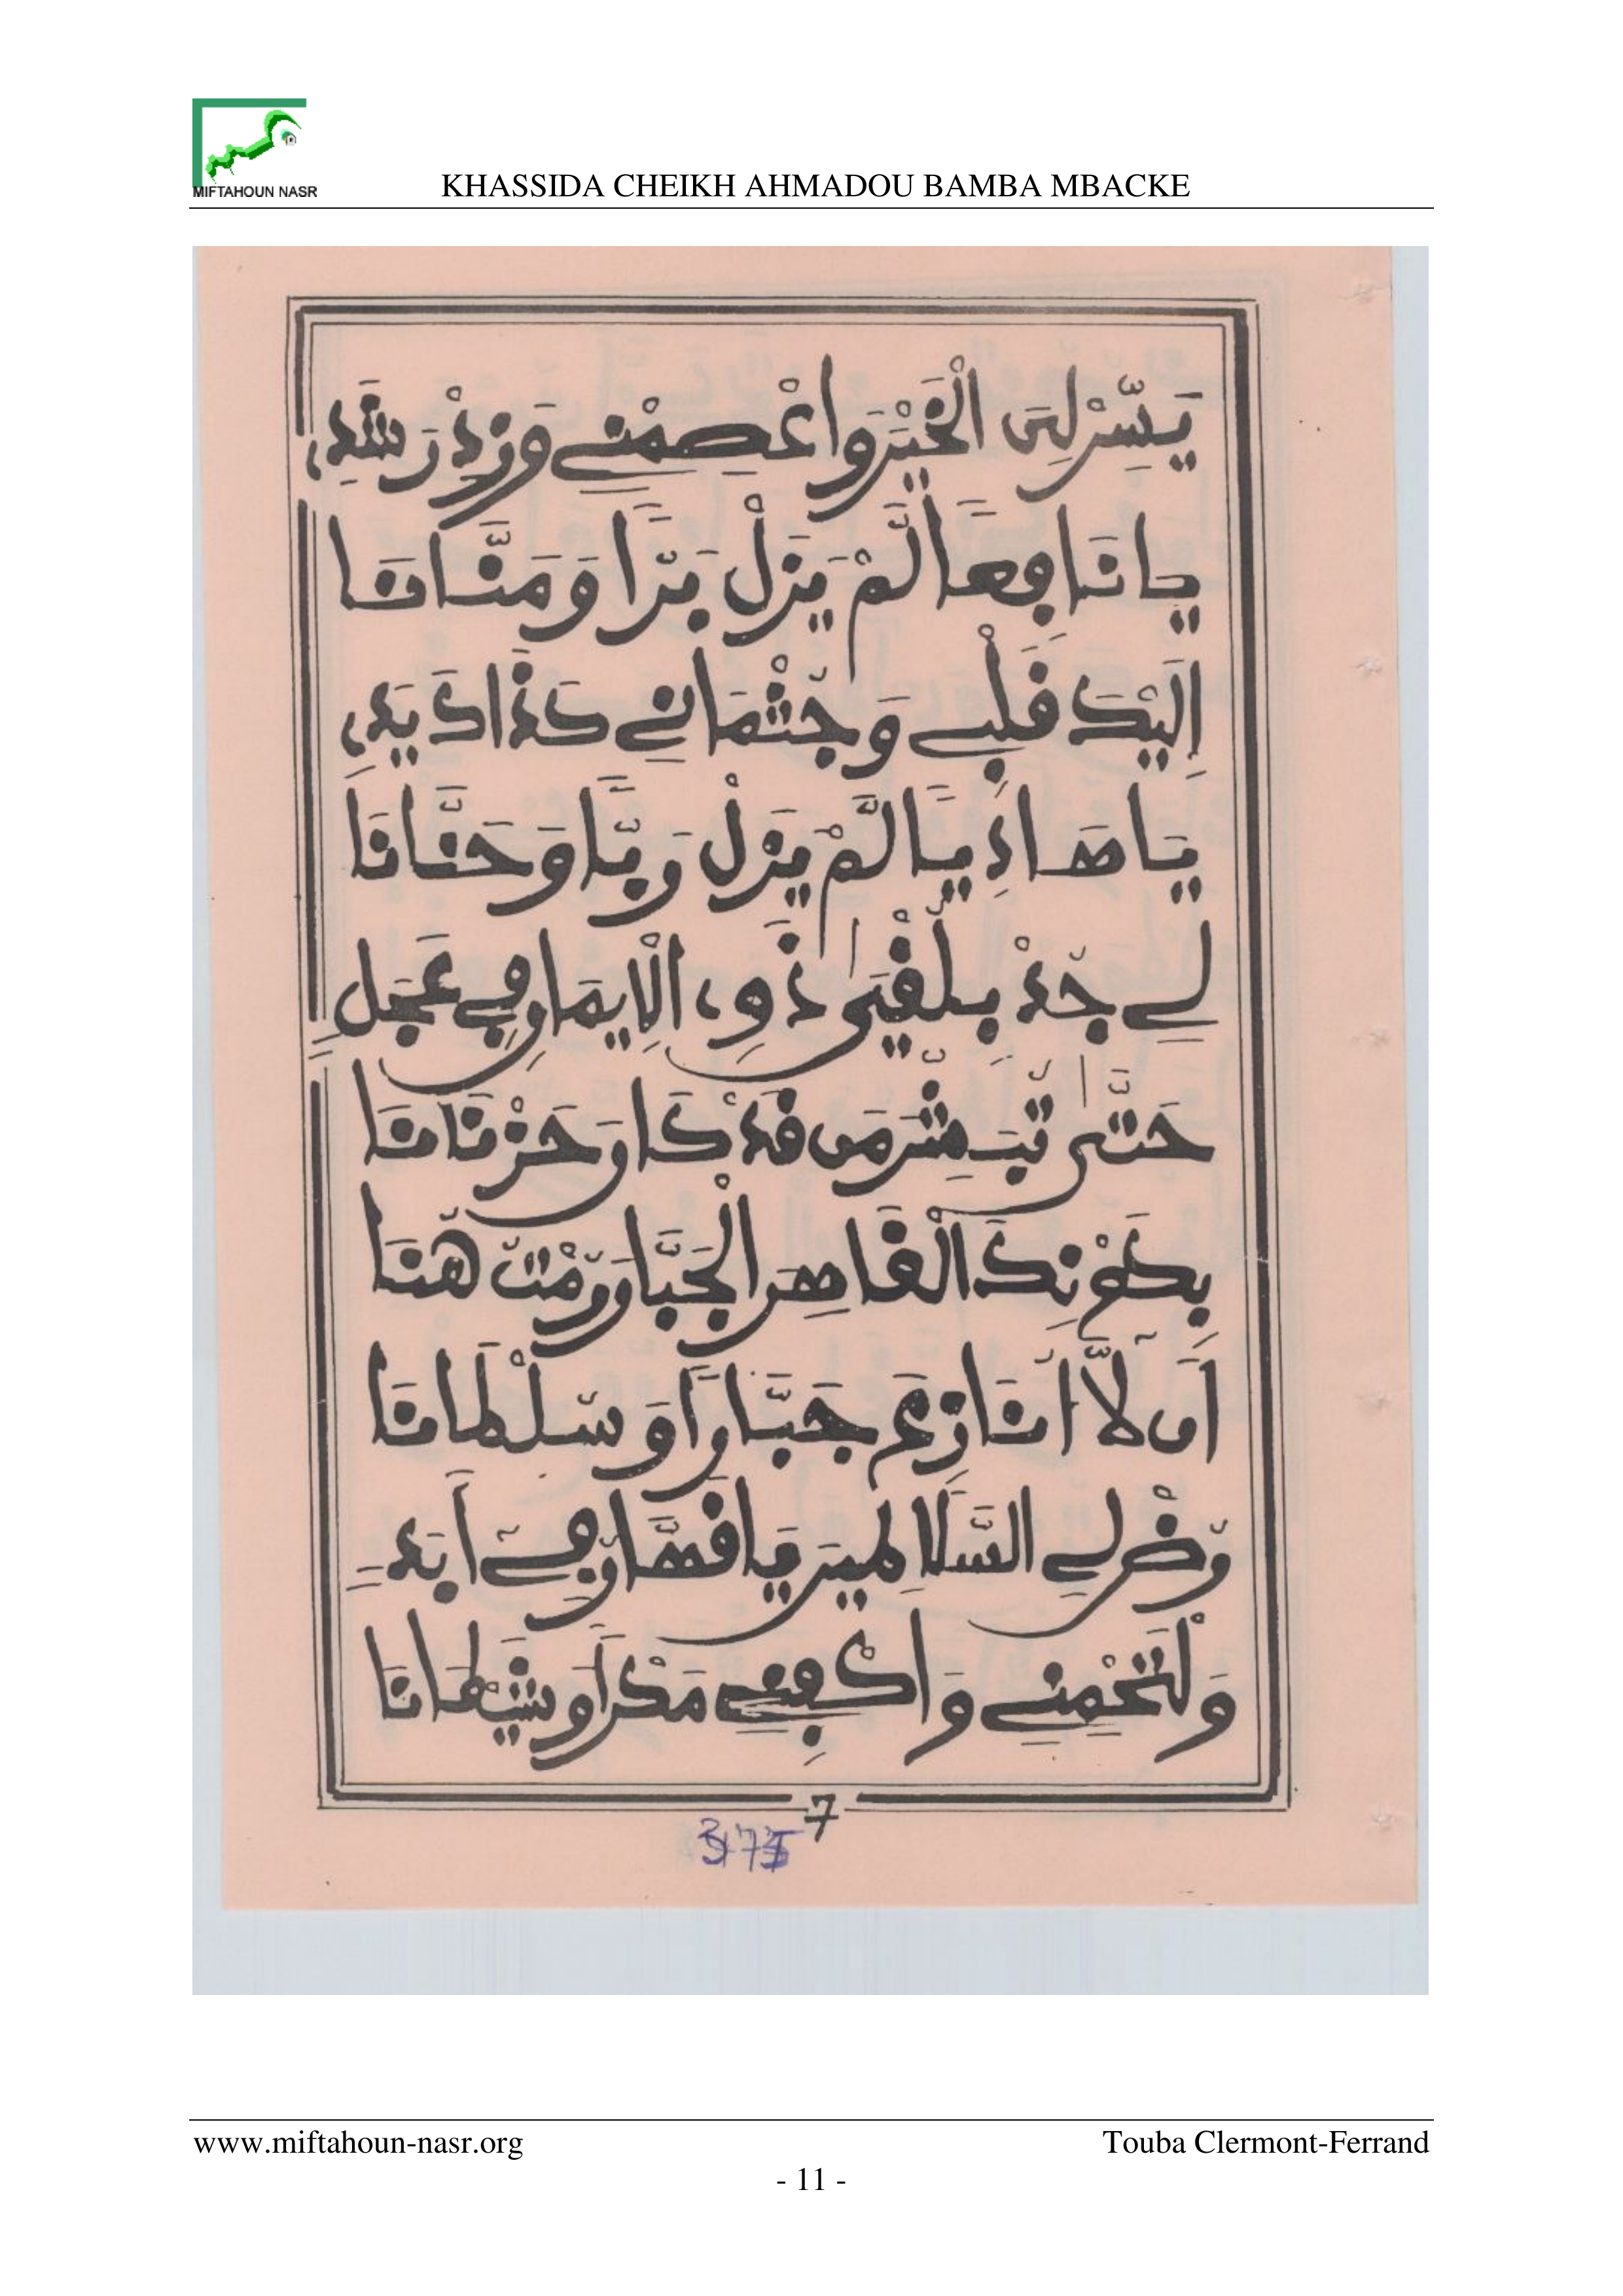 MIFTAHOUN NASR
KHASSIDA CHEIKH AHMADOU BAMBA MBACKE
يَسِّرْ لِيَ الْخَيْرَ وَاعْصِمْنِے وَزِدْ رَشَدِ
يَا نَافِعًا لَّمْ يَزَلْ بَرًّا وَمَنَّانَا
إِلَيْكَ قَلْبِے وَجُثْمَانِے كَذَاكَ يَدِ
يَا هَادِيًا لَّمْ يَزَلْ رَبًّا وَحَنَّانَا
لِے جُدْ بِلُقْيَى ذَوِي الْإِيمَانِ فِے عَجَلٍ
حَتَّى تُبَشِّرَ مَن قَدْ كَانَ حَزْنَانَا
بِكَوْنِكَ الْقَاهِرَ الْجَبَّارَ رُمْتُ هُنَا
أَن لَّا أُنَازِعَ جَبَّارًا وَسُلْطَانَا
رُضْ لِے السَّلَاطِينَ يَا قَهَّارُ فِے أَبَدٍ
وَلْتَحْمِنِے وَاكْفِنِے مَكْرًا وَشَيْطَانَا
7
www.miftahoun-nasr.org
Touba Clermont-Ferrand
- 11 -